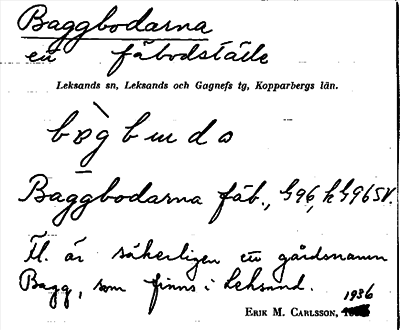 Baggbodarna
en fäbodställe
Leksands sn, Leksands och Gagnefs tg, Kopparbergs län.
Baggbodarna fäb., G96, k G96SV.
F.l. är säkerligen ett gårdsnamn
Bagg, som finns i Leksand.
1936
ERIK M. CARLSSON,